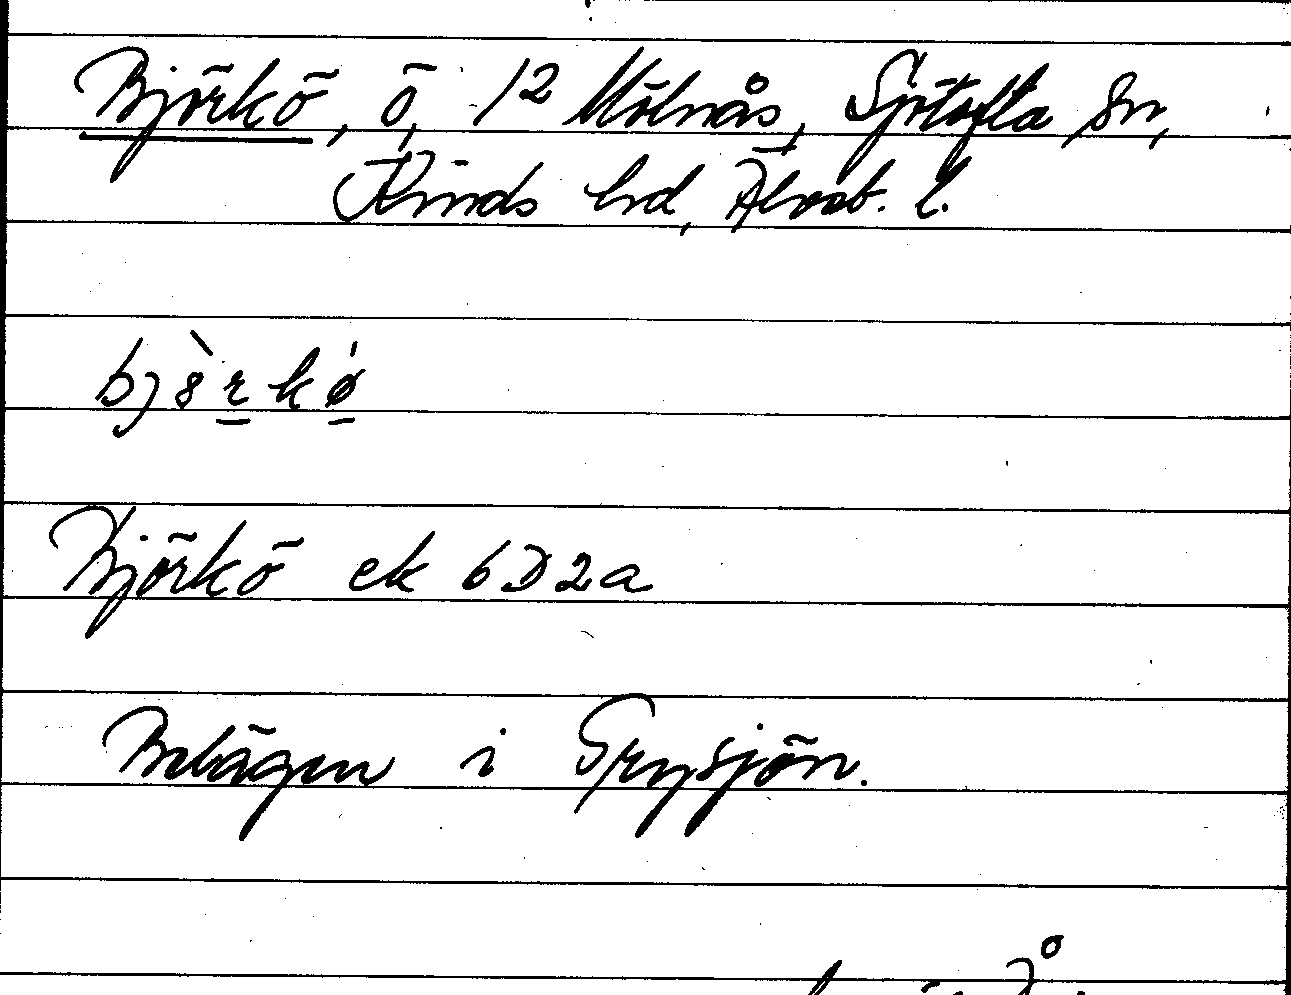 Björkö, ö, 12 Mölnås, Sjötofta sn,
Kinds hd, Älvsb. l.
bjö̀rkǿ
Björkö ek 6D2a
Belägen i Grysjön.